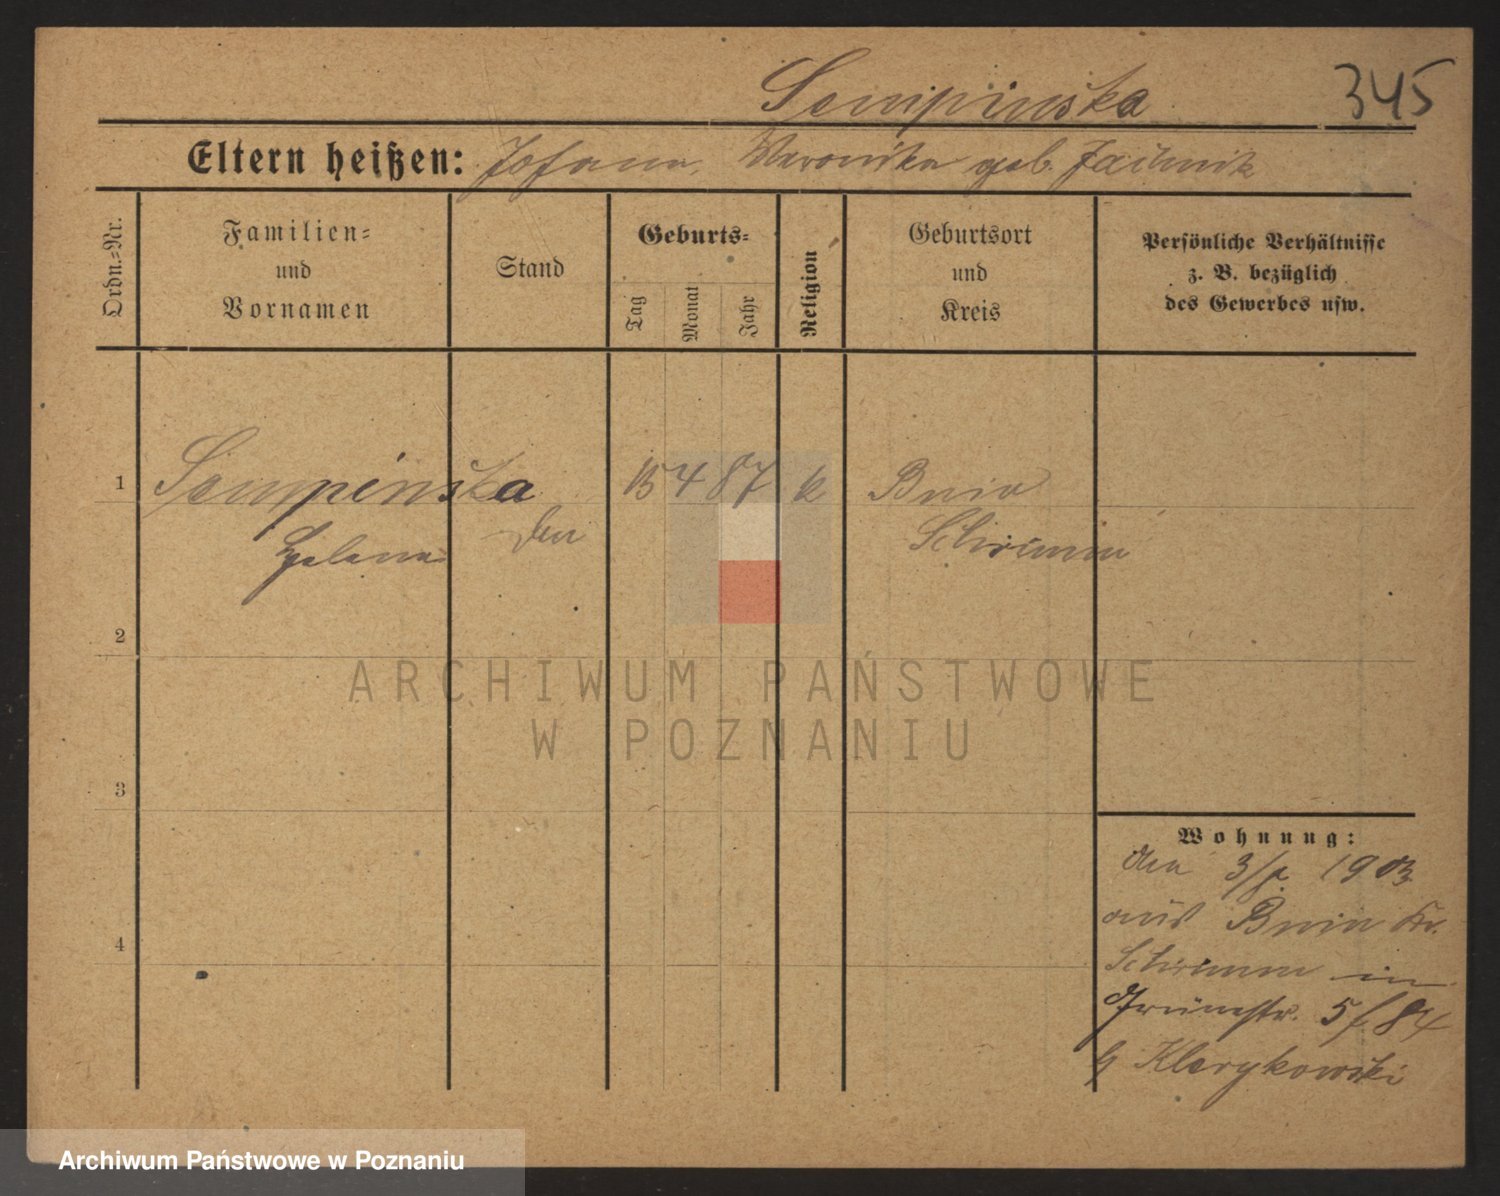 Sempinska
345
Eltern heißen: Johann, Veronika geb. Jachnik
Ordn.-Nr.
Familien-
und
Vornamen
Stand
Geburts-
Tag
Monat
Jahr
Religion
Geburtsort
und
Kreis
Persönliche Verhältnisse
z. B. bezüglich
des Gewerbes usw.
1
Sempinska 15 4 87 k Bnin
Helena Schrimm
2
ARCHIWUM PAŃSTWOWE
W POZNANIU
3
Wohnung:
den 1903
aus Bnin Kr.
Schrimm in
Grünestr. 5
b Klarykowski
4
Archiwum Państwowe w Poznaniu